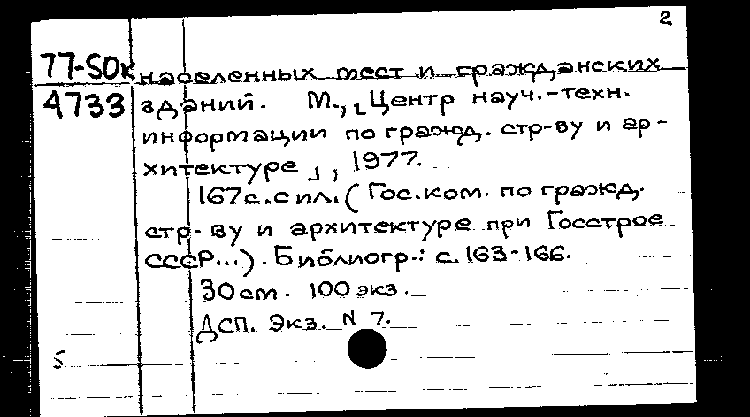 2
77-50к населенных мест и гражданских
4733 зданий. М., [Центр науч.-техн.
информации по гражд. стр-ву и ар-
хитектуре], 1977.
167с.с ил. (Гос.ком. по гражд.
стр-ву и архитектуре при Госстрое
СССР...). Библиогр.: с. 163-166.
30 см. 100 экз.
ДСП. Экз. N 7.
5